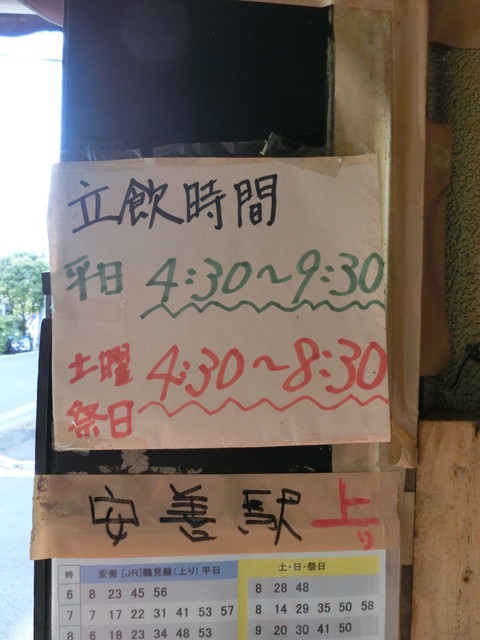 立飲時間
平日 4:30~9:30
土曜 4:30~8:30
祭日
安善駅 上り
時 安善 [JR]鶴見線(上り) 平日 土・日・祭日
6 8 23 45 56 8 28 48
7 7 17 22 31 41 53 57 8 14 29 35 50 58
8 6 18 23 34 48 53 9 20 30 41 50